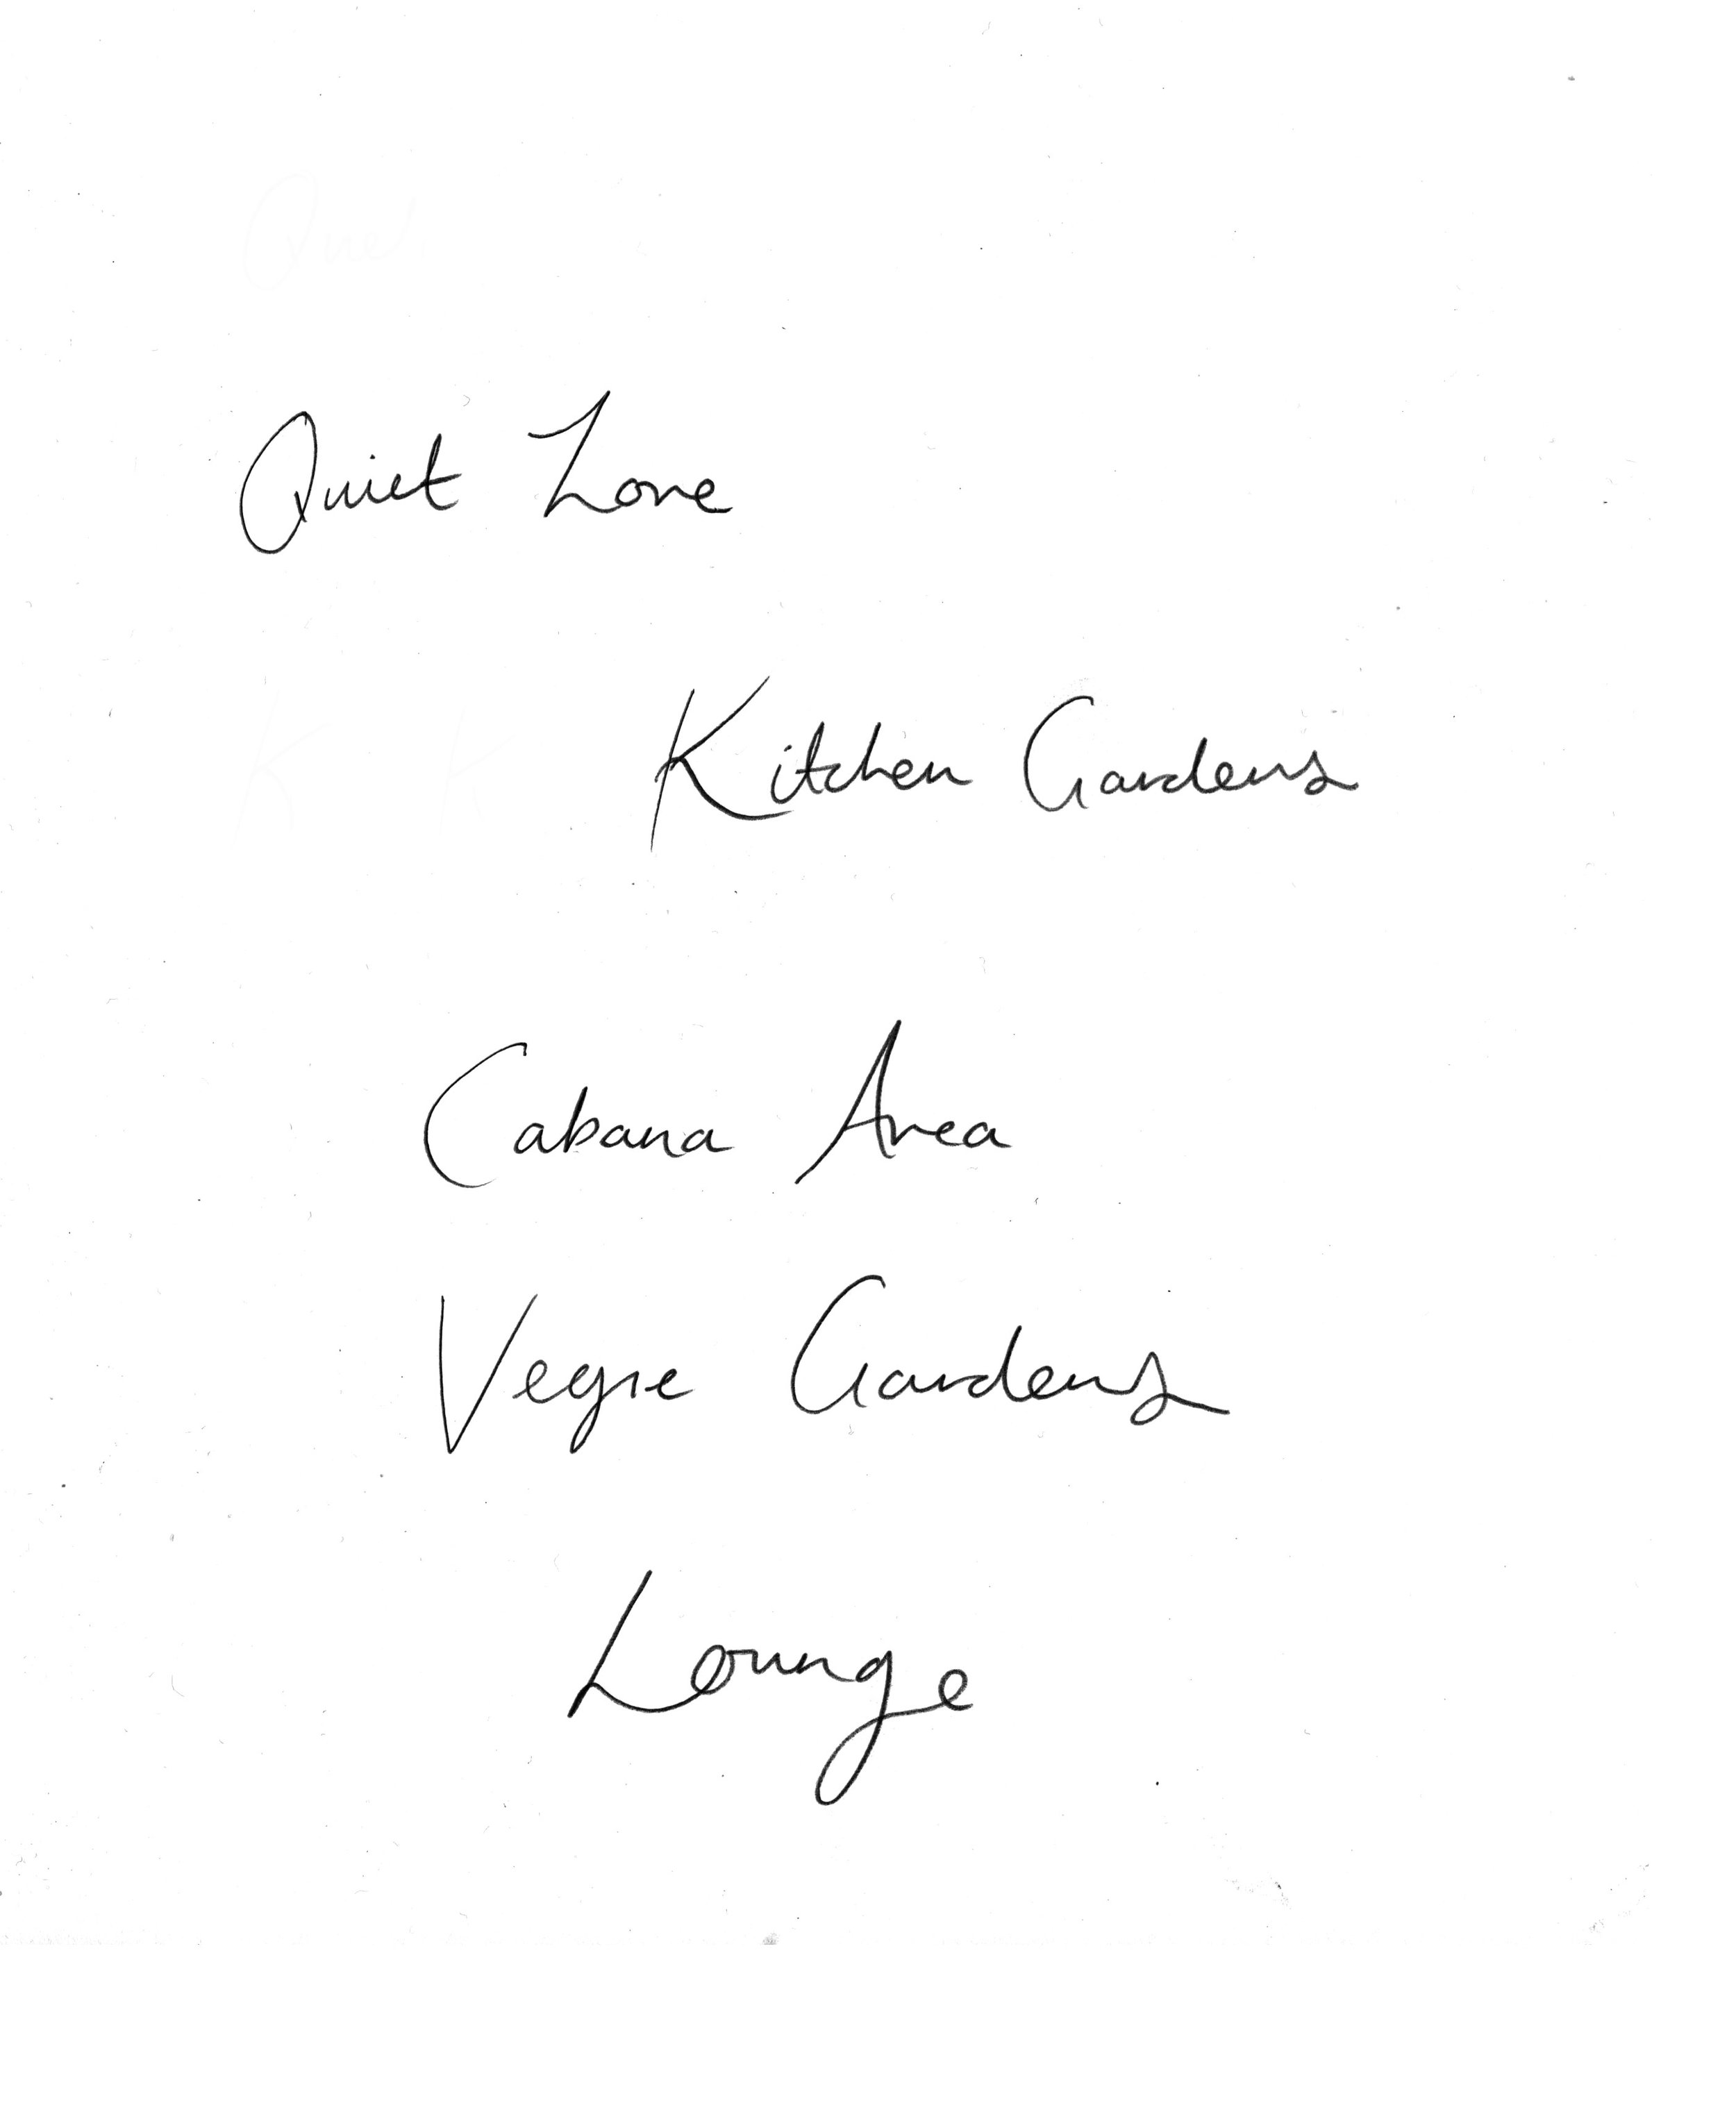 Quiet Zone
Kitchen Gardens
Cabana Area
Vegie Gardens
Lounge